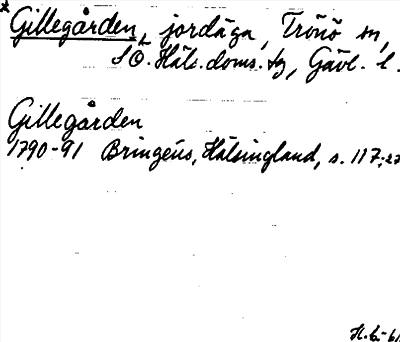 Gillegården, jordäga, Trönö sn,
S Ö. Häls. doms. sg, Gävl. l.
Gillegården
1790-91 Bringéus, Hälsingland, s. 117:27